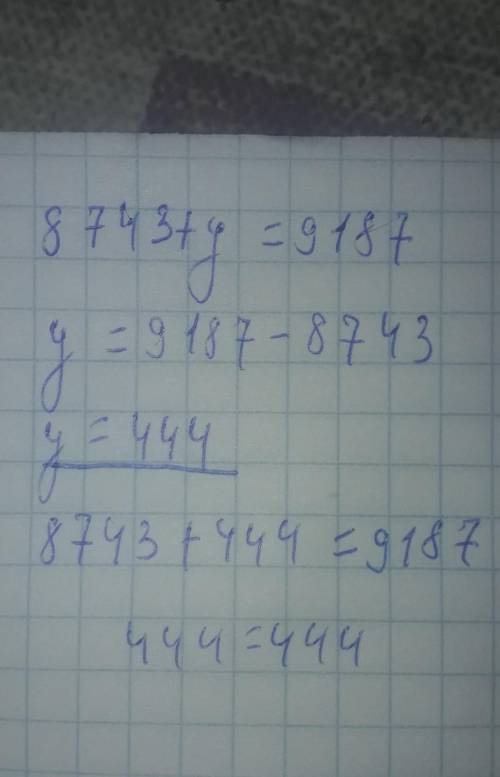 8743+y=9187
y=9187-8743
y=444
8743+444=9187
444=444